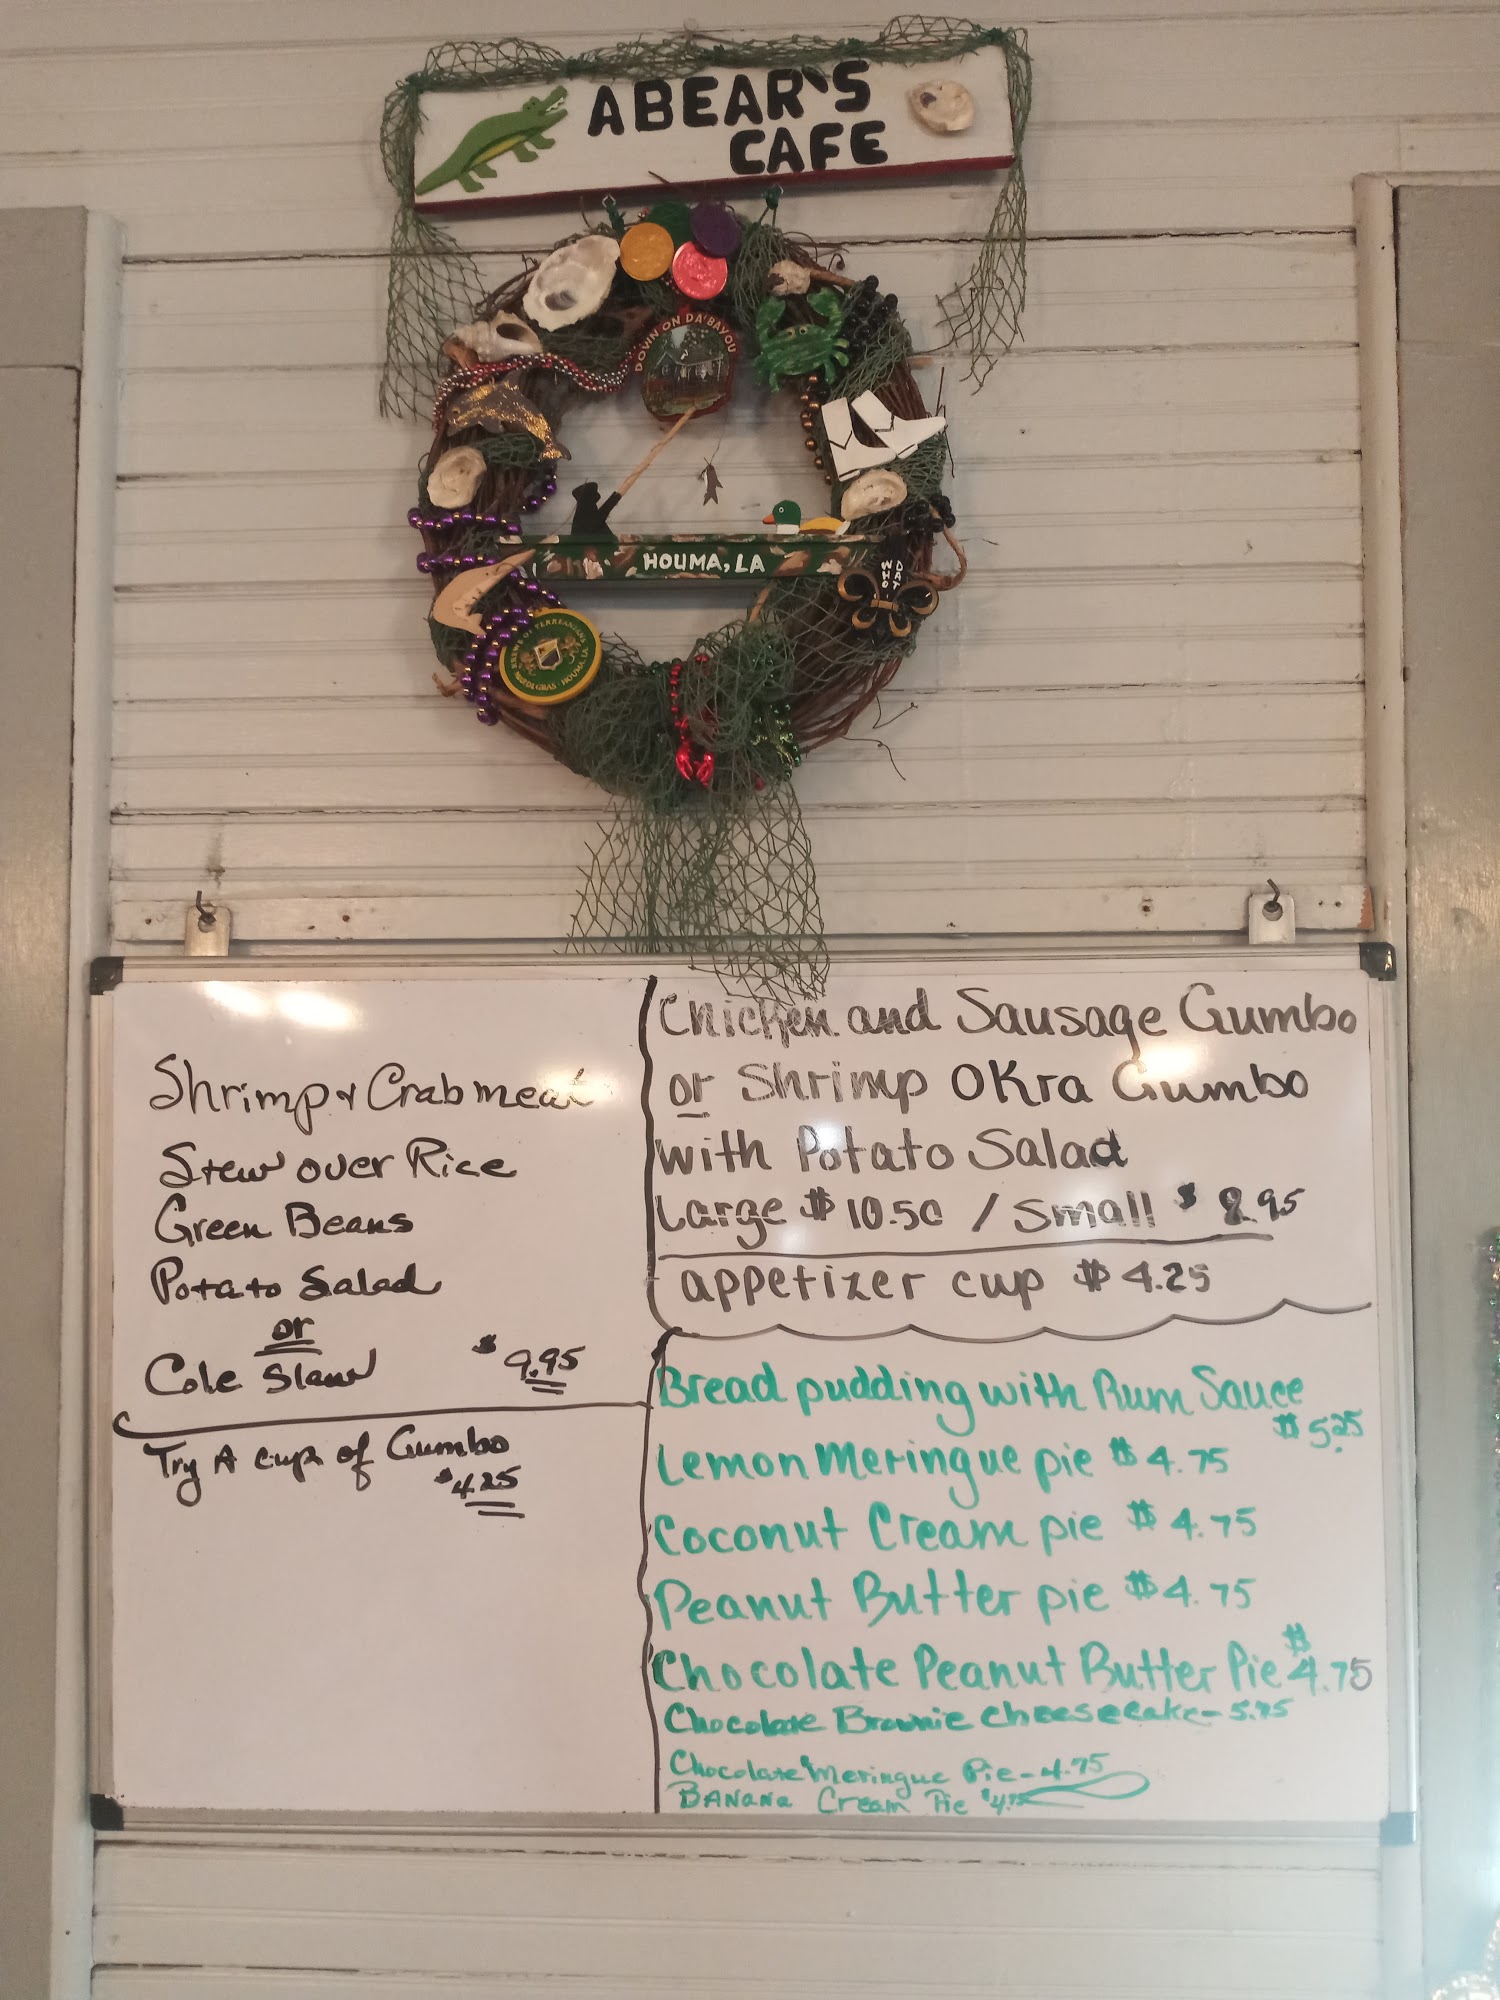 ABEAR'S
CAFE
DOWN ON DA'BAYOU
HOUMA, LA
WHO
DAT
KREWE OF TERREANIANS
MARDI GRAS · HOUMA, LA
Shrimp & Crabmeat
Stew over Rice
Green Beans
Potato Salad
or
Cole Slaw $9.95
Try A cup of Gumbo
$4.25
Chicken and Sausage Gumbo
or Shrimp Okra Gumbo
with Potato Salad
Large $10.50 / Small $8.95
appetizer cup $4.25
Bread pudding with Rum Sauce
$5.25
Lemon Meringue pie $4.75
Coconut Cream pie $4.75
Peanut Butter pie $4.75
Chocolate Peanut Butter Pie $4.75
Chocolate Brownie cheesecake-
Chocolate Meringue Pie-4.75
BANANA Cream Pie $4.75